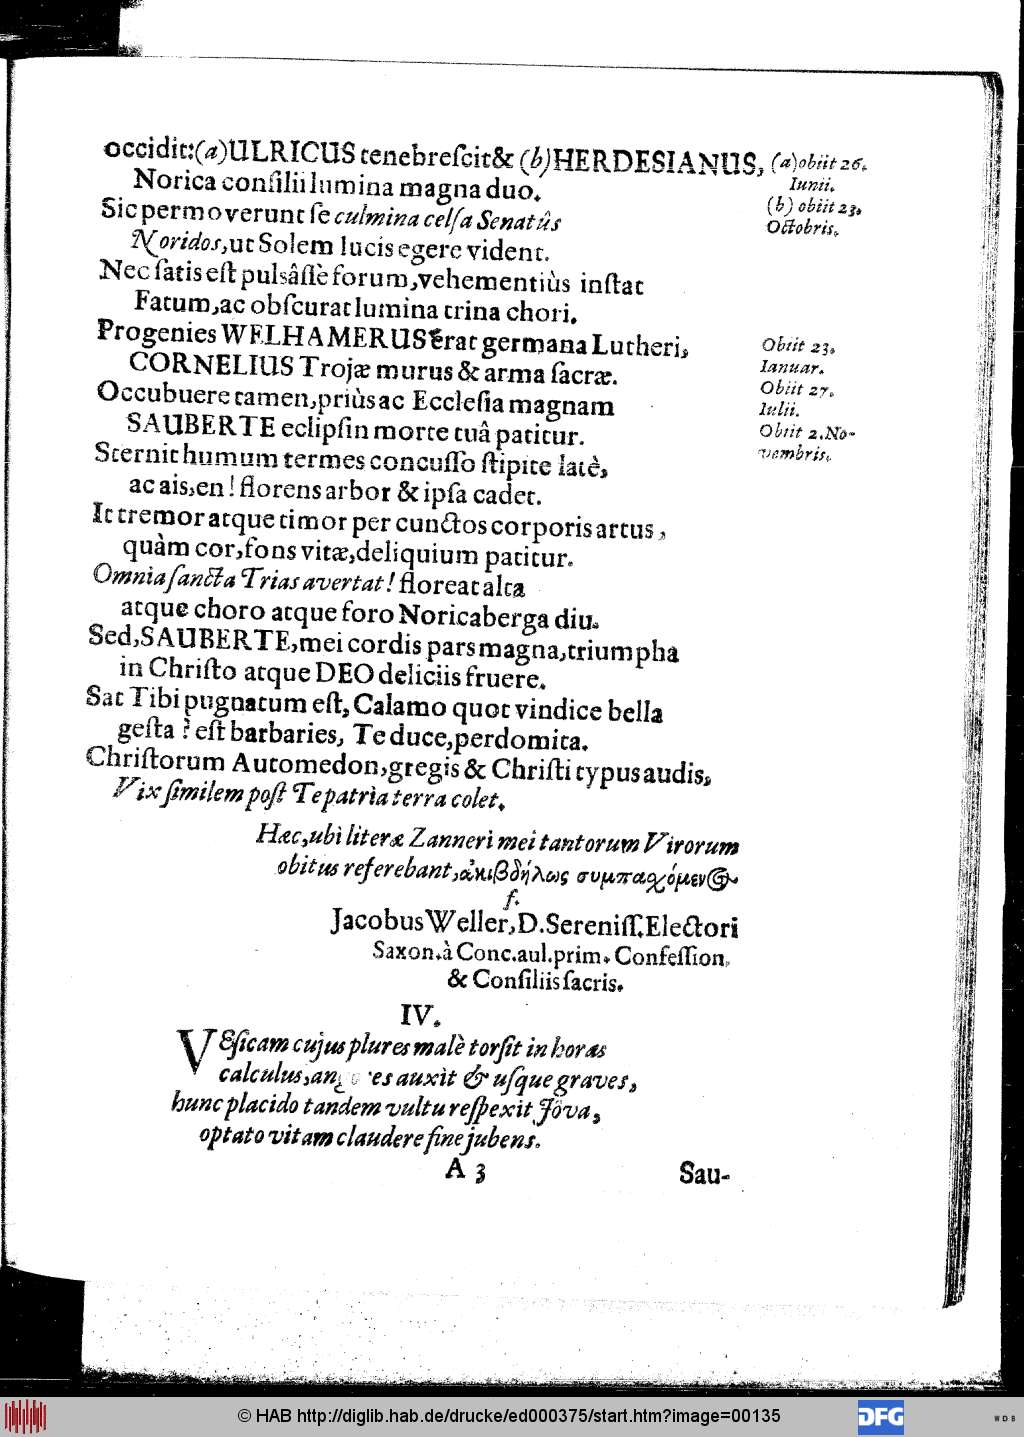 occidit:(a)ULRICUS tenebreſcit& (b)HERDESIANUS,
Norica conſilii lumina magna duo.
Sic permoverunt ſe culmina celſa Senatûs
Noridos, ut Solem lucis egere vident.
Nec ſatis eſt pulsâſſè forum, vehementiùs inſtat
Fatum, ac obſcurat lumina trina chori.
Progenies WELHAMERUS erat germana Lutheri,
CORNELIUS Trojæ murus & arma ſacræ.
Occubuere tamen, priùs ac Eccleſia magnam
SAUBERTE eclipſin morte tuâ patitur.
Sternit humum termes concuſſo ſtipite latè,
ac ais, en! florens arbor & ipſa cadet.
It tremor atque timor per cunctos corporis artus,
quàm cor, fons vitæ, deliquium patitur.
Omnia ſancta Trias avertat! floreat alta
atque choro atque foro Noricaberga diu.
Sed, SAUBERTE, mei cordis pars magna, triumpha
in Chriſto atque DEO deliciis fruere.
Sat Tibi pugnatum eſt, Calamo quot vindice bella
geſta? eſt barbaries, Te duce, perdomita.
Chriſtorum Automedon, gregis & Chriſti typus audis,
Vix ſimilem poſt Te patria terra colet.
(a) obiit 26.
Iunii.
(b) obiit 23.
Octobris.
Obiit 23.
Ianuar.
Obiit 27.
Iulii.
Obiit 2. No-
vembris.
Hæc, ubi literæ Zanneri mei tantorum Virorum
obitus referebant, ἀκιβδήλως συμπαχόμενος
f.
Jacobus Weller, D. Sereniſſ. Electori
Saxon. à Conc. aul. prim. Confeſſion.
& Conſiliis ſacris.
IV.
VEſicam cujus plures malè torſit in horas
calculus, auxit & uſque graves,
hunc placido tandem vultu reſpexit Jöva,
optato vitam claudere fine jubens.
A 3 Sau-
© HAB http://diglib.hab.de/drucke/ed000375/start.htm?image=00135
DFG
WDB